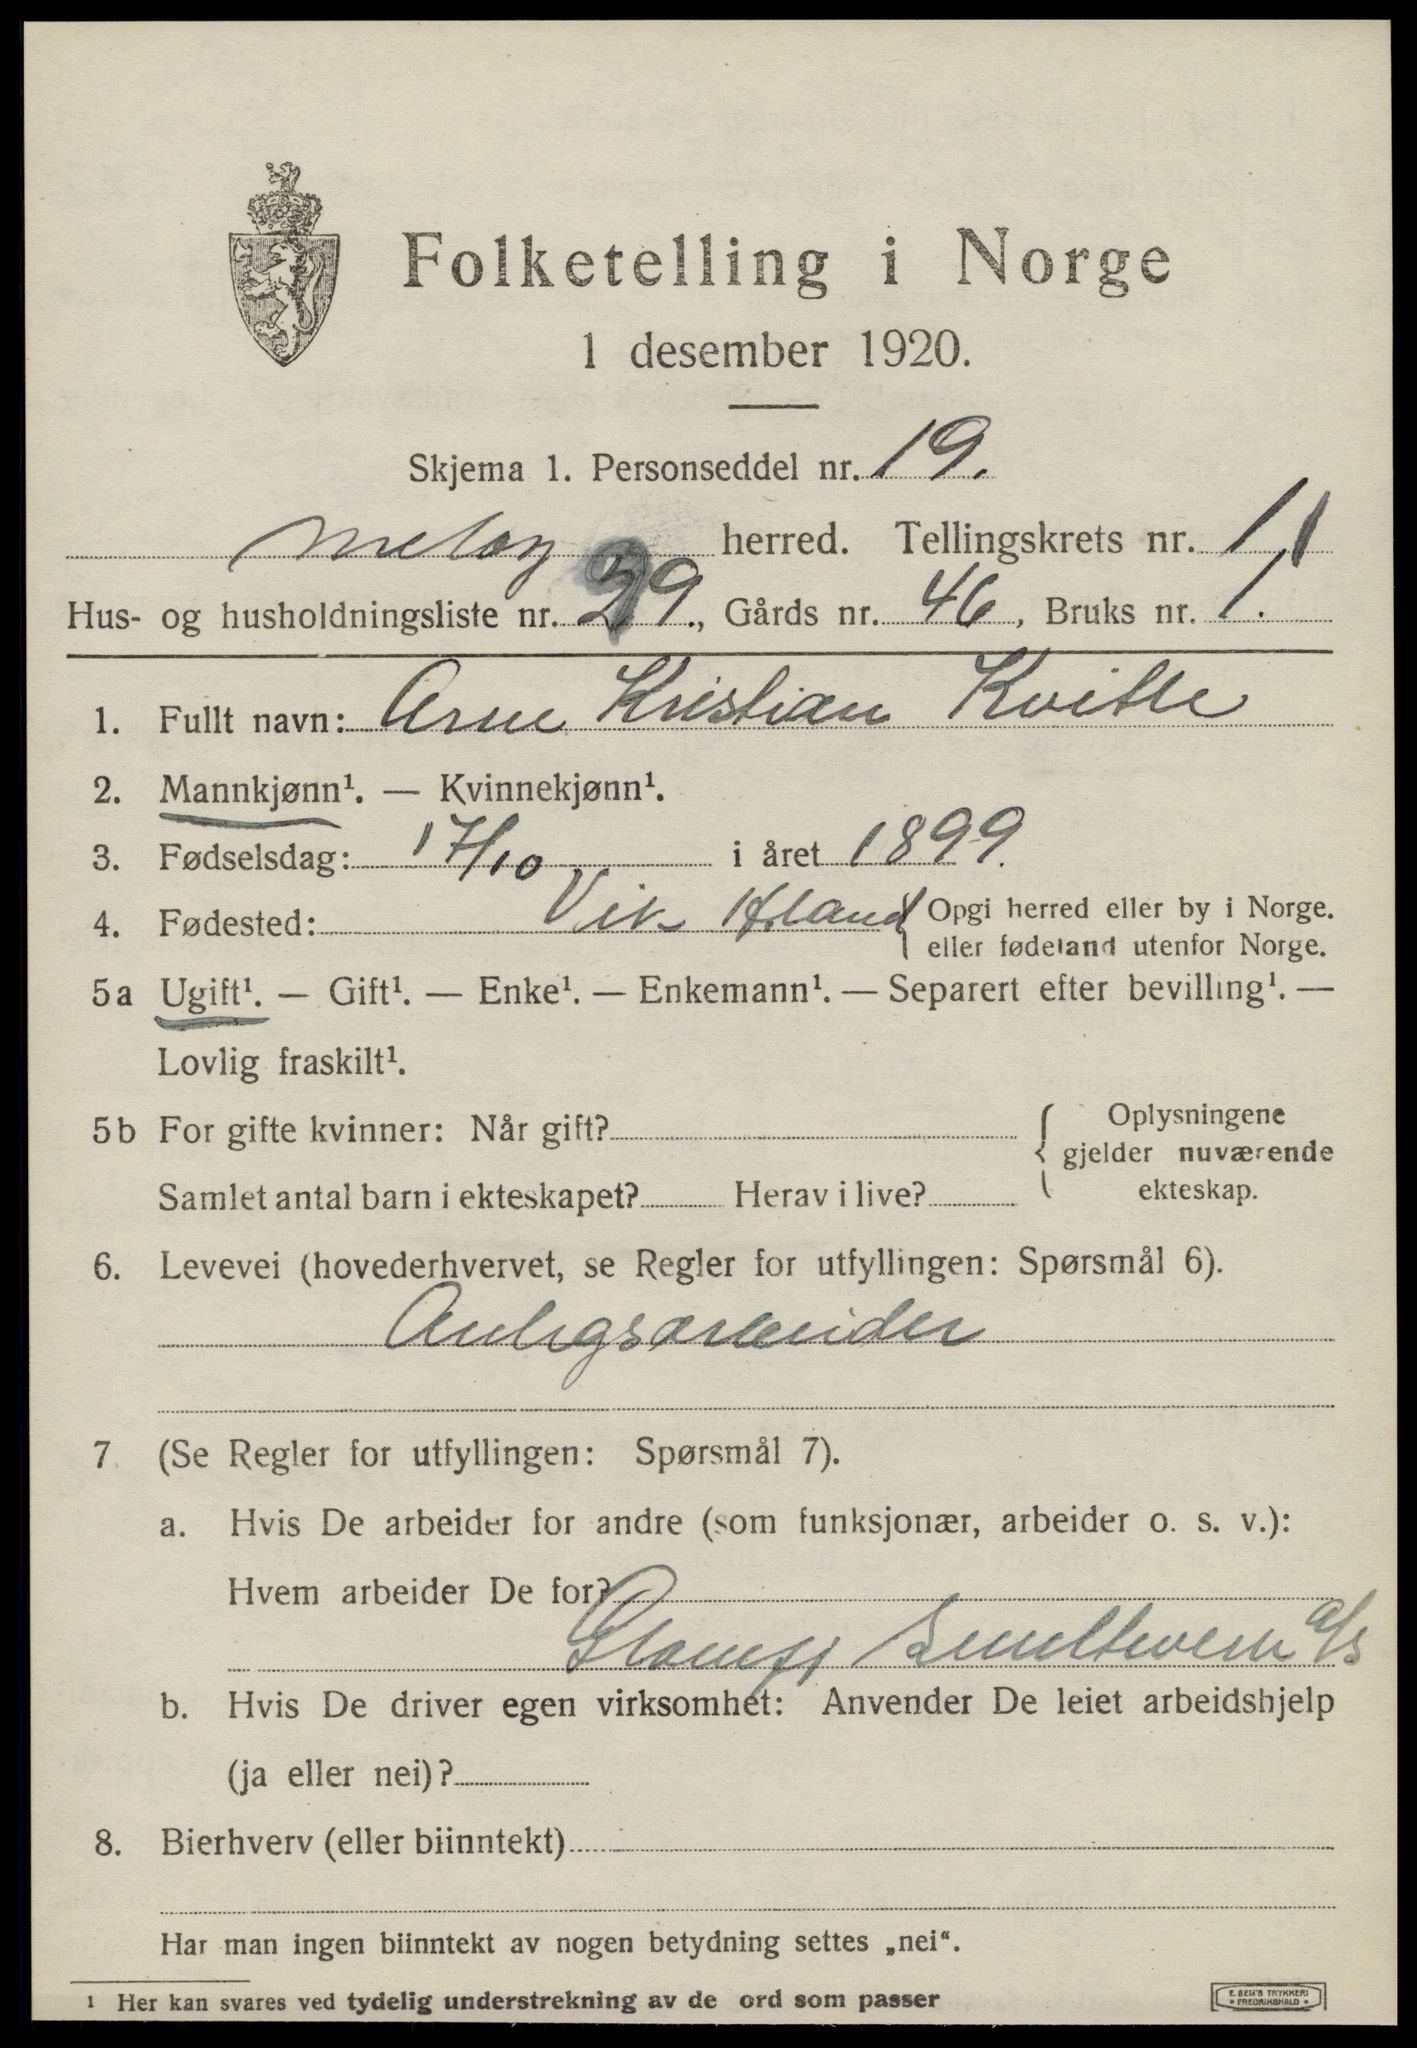 Folketelling i Norge
1 desember 1920.
Skjema 1. Personseddel nr. 19.
Meløy herred. Tellingskrets nr. 11
Hus- og husholdningsliste nr. 39., Gårds nr. 46, Bruks nr. 1.
1. Fullt navn: Arne Kristian Kvitle
2. Mannkjønn¹. — Kvinnekjønn¹.
3. Fødselsdag: 17/10 i året 1899.
4. Fødested: Vik H.land { Opgi herred eller by i Norge.
eller fødeland utenfor Norge.
5a Ugift¹. — Gift¹. — Enke¹. — Enkemann¹. — Separert efter bevilling¹. —
Lovlig fraskilt¹.
5b For gifte kvinner: Når gift? { Oplysningene
gjelder nuværende
Samlet antal barn i ekteskapet? Herav i live? ekteskap.
6. Levevei (hovederhvervet, se Regler for utfyllingen: Spørsmål 6).
Anlegsarbeider
7 (Se Regler for utfyllingen: Spørsmål 7).
a. Hvis De arbeider for andre (som funksjonær, arbeider o. s. v.):
Hvem arbeider De for?
Glomfj Smelteverk a/s
b. Hvis De driver egen virksomhet: Anvender De leiet arbeidshjelp
(ja eller nei)?
8. Bierhverv (eller biinntekt)
Har man ingen biinntekt av nogen betydning settes „nei“.
¹ Her kan svares ved tydelig understrekning av de ord som passer
E. SEM'S TRYKKERI
• FREDRIKSHALD •